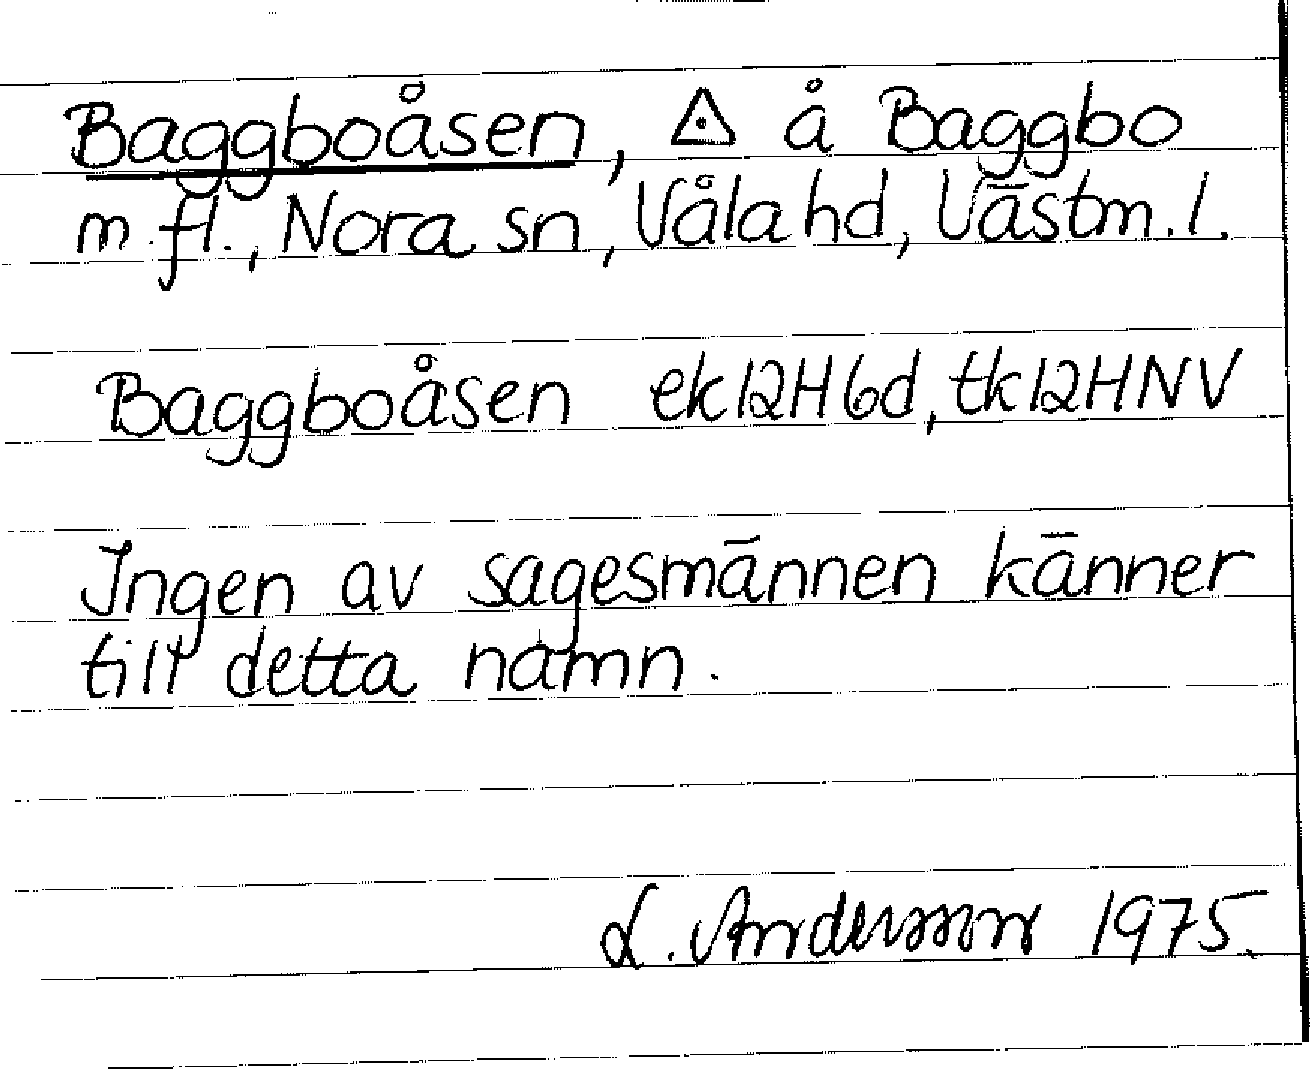 Baggboåsen, å Baggbo
m.fl., Nora sn, Våla hd, Västm.l.
Baggboåsen ek12H6d, tk12HNV
Ingen av sagesmännen känner
till detta namn.
L. Andersson 1975.